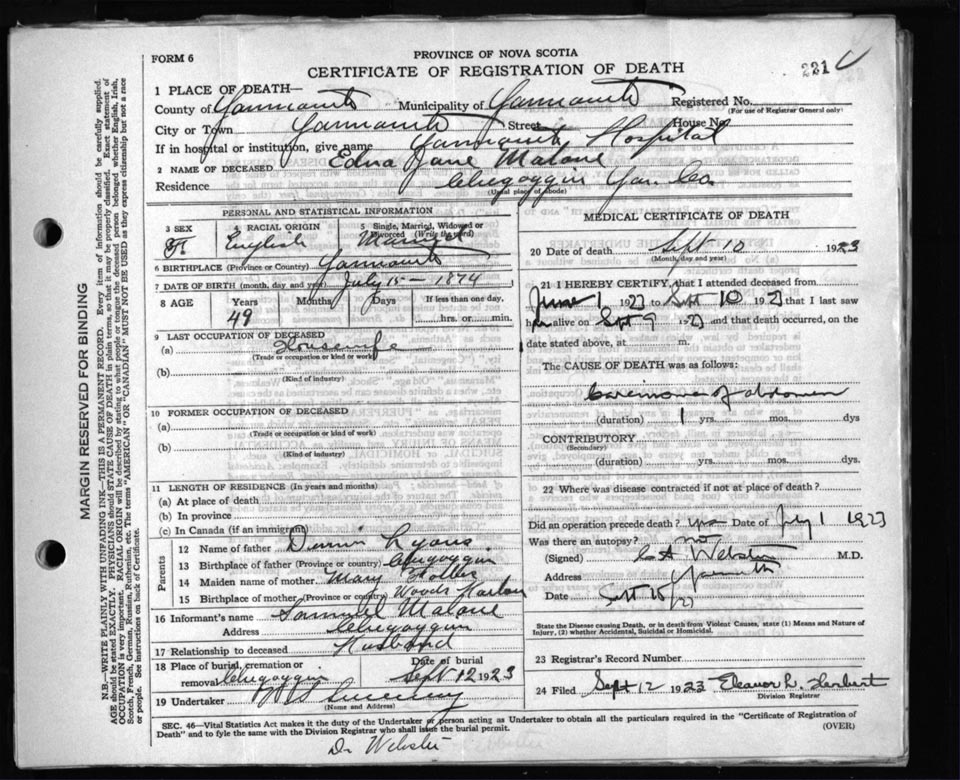 PROVINCE OF NOVA SCOTIA
FORM 6
CERTIFICATE OF REGISTRATION OF DEATH
221
1 PLACE OF DEATH—
County of Yarmouth Municipality of Yarmouth Registered No.
(For use of Registrar General only)
City or Town Yarmouth Street House No.
If in hospital or institution, give name Yarmouth Hospital
2 NAME OF DECEASED Edna Jane Malone
Residence Chegoggin Yar Co.
(Usual place of abode)
PERSONAL AND STATISTICAL INFORMATION
3 SEX 4 RACIAL ORIGIN 5 Single, Married, Widowed or Divorced (Write the word)
F English Married
6 BIRTHPLACE (Province or Country) Yarmouth
7 DATE OF BIRTH (month, day and year) July 15— 1874
8 AGE Years Months Days If less than one day,
49 hrs. or min.
9 LAST OCCUPATION OF DECEASED
(a) Housewife
(Trade or occupation or kind of work)
(b)
(Kind of industry)
10 FORMER OCCUPATION OF DECEASED
(a)
(Trade or occupation or kind of work)
(b)
(Kind of industry)
11 LENGTH OF RESIDENCE (In years and months)
(a) At place of death
(b) In province
(c) In Canada (if an immigrant)
Parents
12 Name of father Lyons
13 Birthplace of father (Province or country) Chegoggin
14 Maiden name of mother Mary
15 Birthplace of mother (Province or country) Woods Harbor
16 Informant's name Samuel Malone
Address Chegoggin
17 Relationship to deceased Husband
18 Place of burial, cremation or removal Chegoggin Date of burial Sept 12 1923
19 Undertaker Sweeney
(Name and Address)
MEDICAL CERTIFICATE OF DEATH
20 Date of death Sept 10 1923
(Month, day and year)
21 I HEREBY CERTIFY, that I attended deceased from
June 1 1923 to Sept 10 1923 that I last saw
her alive on Sept 9 1923 and that death occurred, on the
date stated above, at m.
The CAUSE OF DEATH was as follows:
Carcinoma of abdomen
(duration) 1 yrs. mos. dys
CONTRIBUTORY
(Secondary)
(duration) yrs. mos. dys.
22 Where was disease contracted if not at place of death?
Did an operation precede death? yes Date of July 1 1923
Was there an autopsy? no
(Signed) C A Webster M.D.
Address Yarmouth
Date Sept 10/23
State the Disease causing Death, or in death from Violent Causes, state (1) Means and Nature of Injury, (2) whether Accidental, Suicidal or Homicidal.
23 Registrar's Record Number
24 Filed Sept 12 1923 Eleanor L. Herbert
Division Registrar
SEC. 46—Vital Statistics Act makes it the duty of the Undertaker or person acting as Undertaker to obtain all the particulars required in the "Certificate of Registration of
Death" and to fyle the same with the Division Registrar who shall issue the burial permit.
(OVER)
Dr Webster
MARGIN RESERVED FOR BINDING
N.B.—WRITE PLAINLY WITH UNFADING INK—THIS IS A PERMANENT RECORD. Every item of information should be carefully supplied.
AGE should be stated EXACTLY. PHYSICIANS should STATE CAUSE OF DEATH in plain terms, so that it may be properly classified. Exact statement of
OCCUPATION is very important. RACIAL ORIGIN will be described by stating to what people or tongue the deceased person belonged whether English, Irish,
Scotch, French, German, Russian, Ruthenian, etc. The terms "AMERICAN" OR "CANADIAN" MUST NOT BE USED as they express citizenship but not a race
or people. See instructions on back of Certificate.